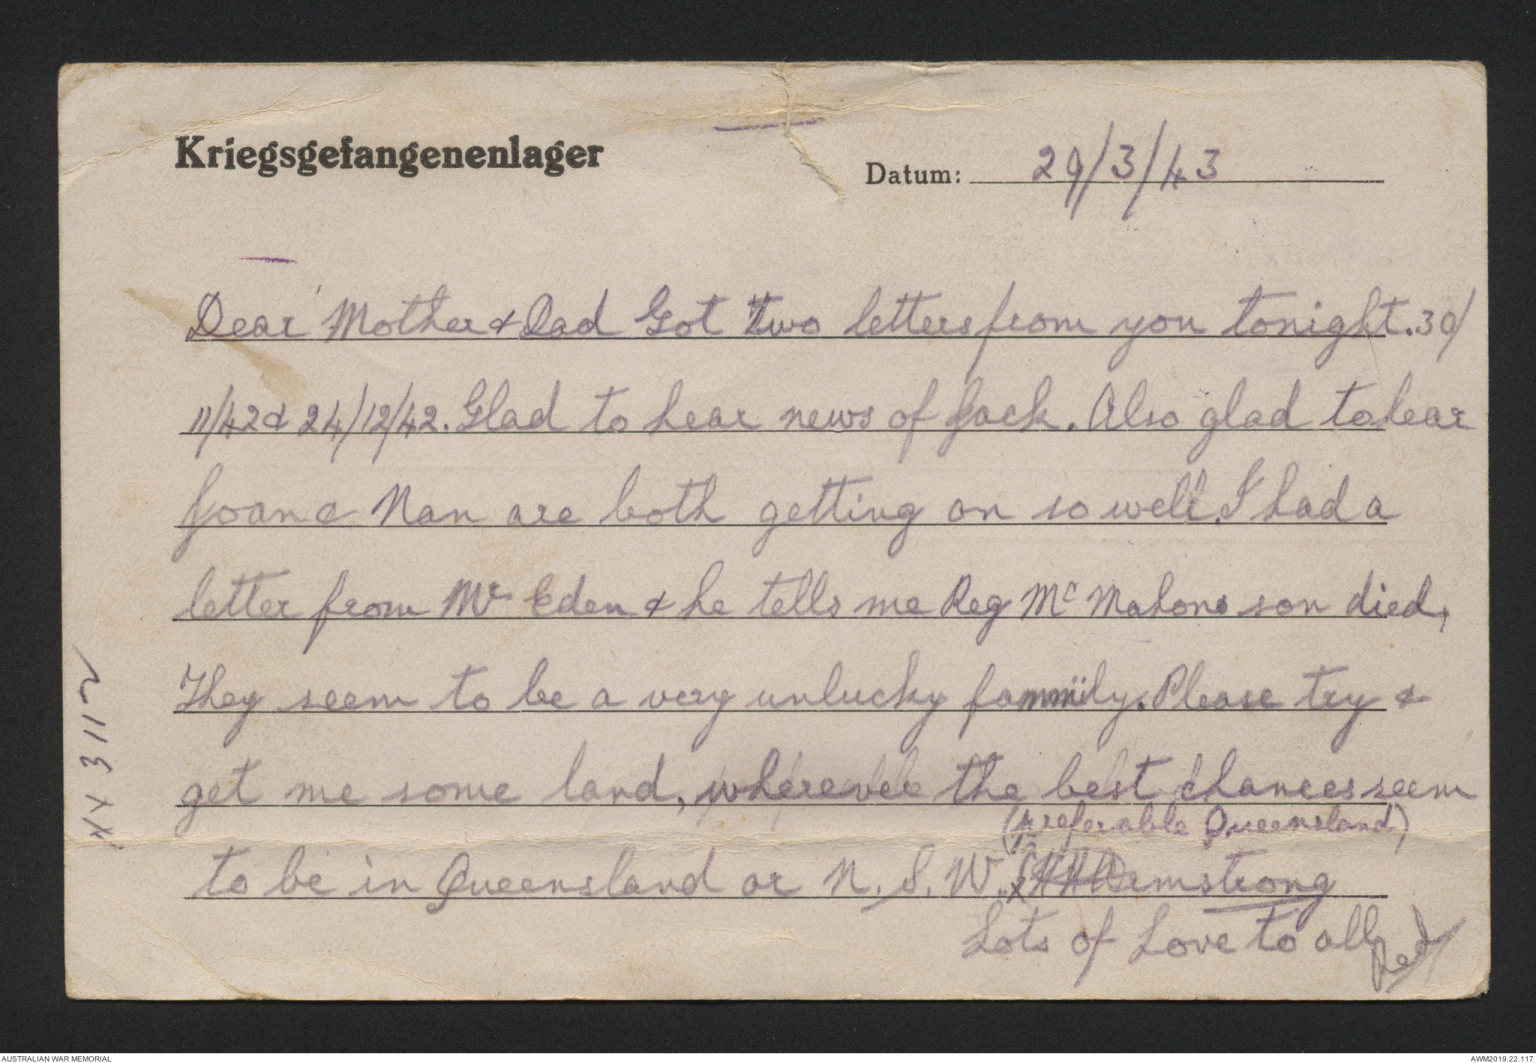 Kriegsgefangenenlager
Datum: 29/3/43
Dear Mother & Dad Got two letters from you tonight. 30/
11/42 & 24/12/42. Glad to hear news of Jack. Also glad to hear
Joan & Nan are both getting on so well. I had a
letter from Mr Eden & he tells me Reg McMahons son died,
They seem to be a very unlucky family. Please try &
get me some land, wherever the best chances seem
(Preferable Queensland)
to be in Queensland or N.S.W. x Armstrong
Lots of Love to all